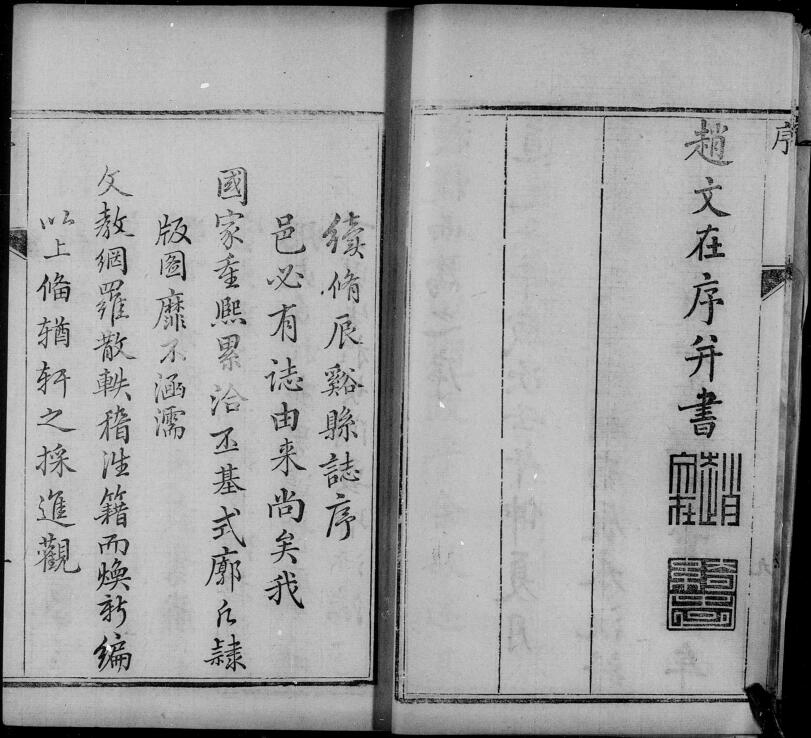 序
趙文在序并書
續脩辰谿縣誌序
邑必有誌由来尚矣我
國家重熙累洽丕基式廓凡隸
版圖靡不涵濡
文教網羅散軼稽往籍而煥新編
以上偹輶軒之採進觀